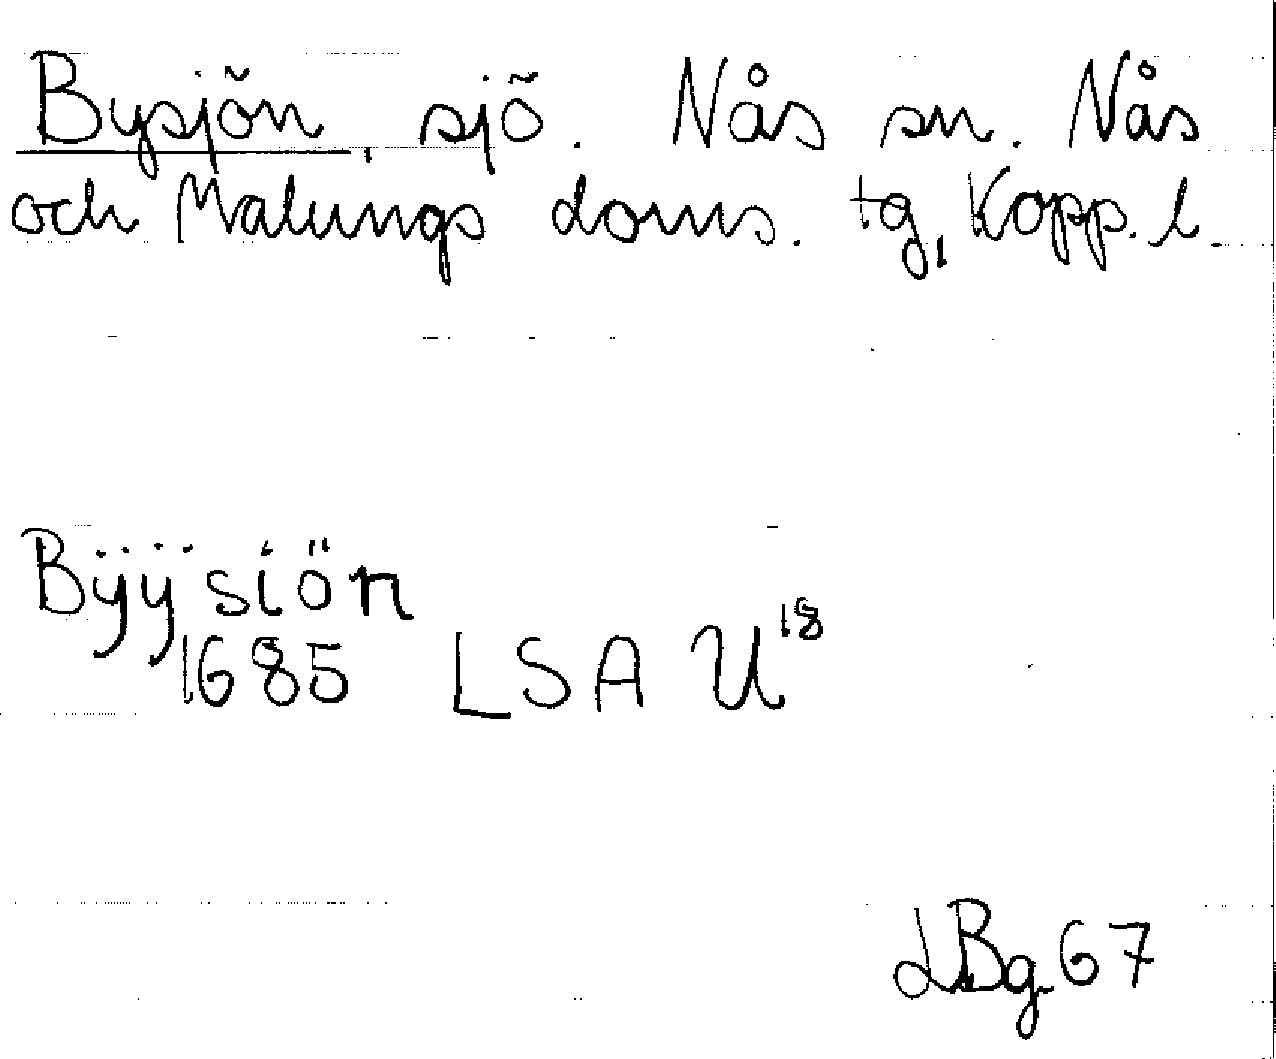 Bysjön, sjö. Nås sn. Nås
och Malungs doms. tg, Kopp. l.
Bÿÿsiön
1685 LSA U18
LBg 67